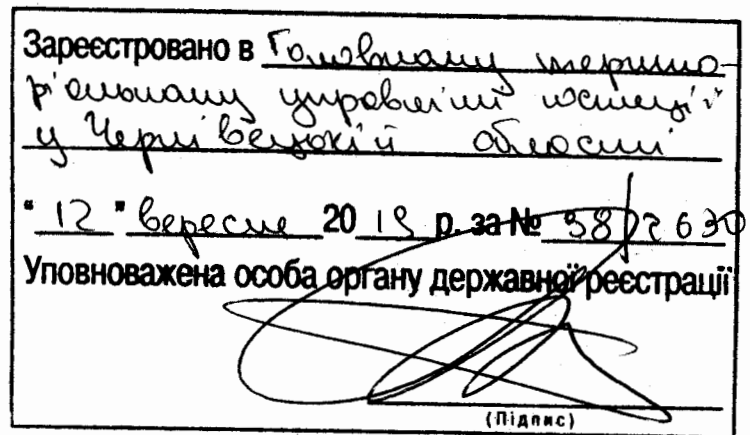 Зареєстровано в Головному терито-
ріальному управлінні юстиції
у Чернівецькій області
"12" вересня 2019 р. за № 38/2630
Уповноважена особа органу державної реєстрації
(Підпис)